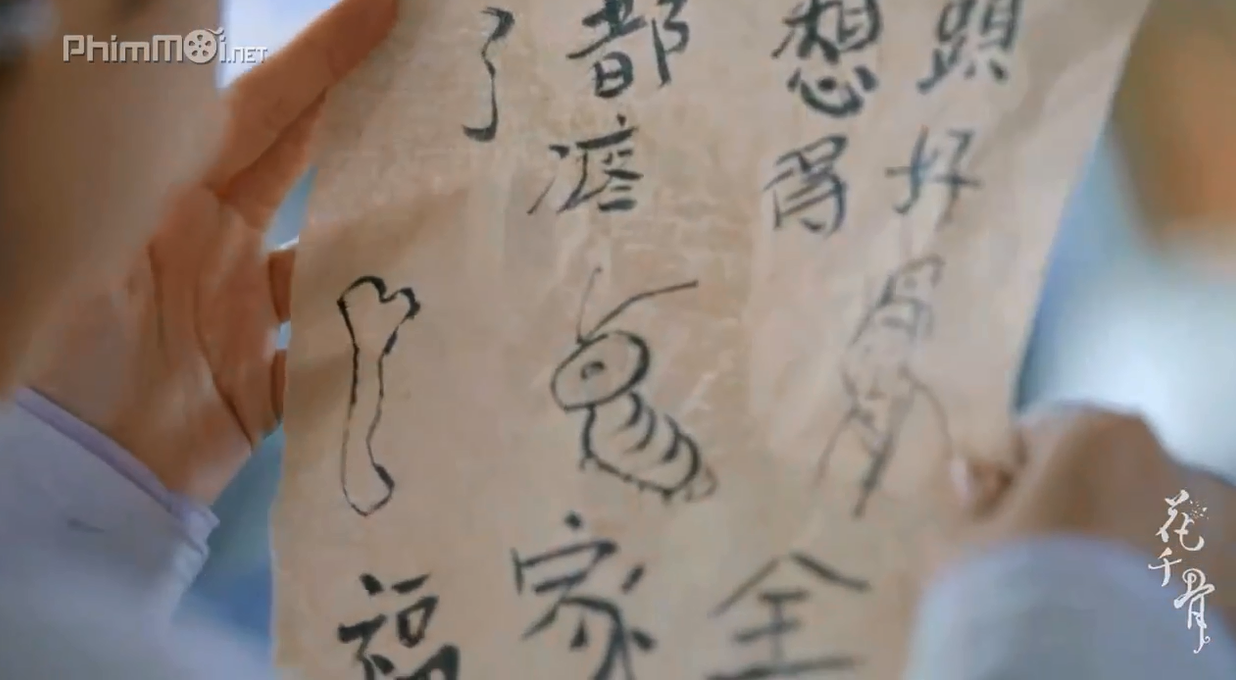 PhimMỗi.NET
頭好
想得全
都家
了福
花千骨